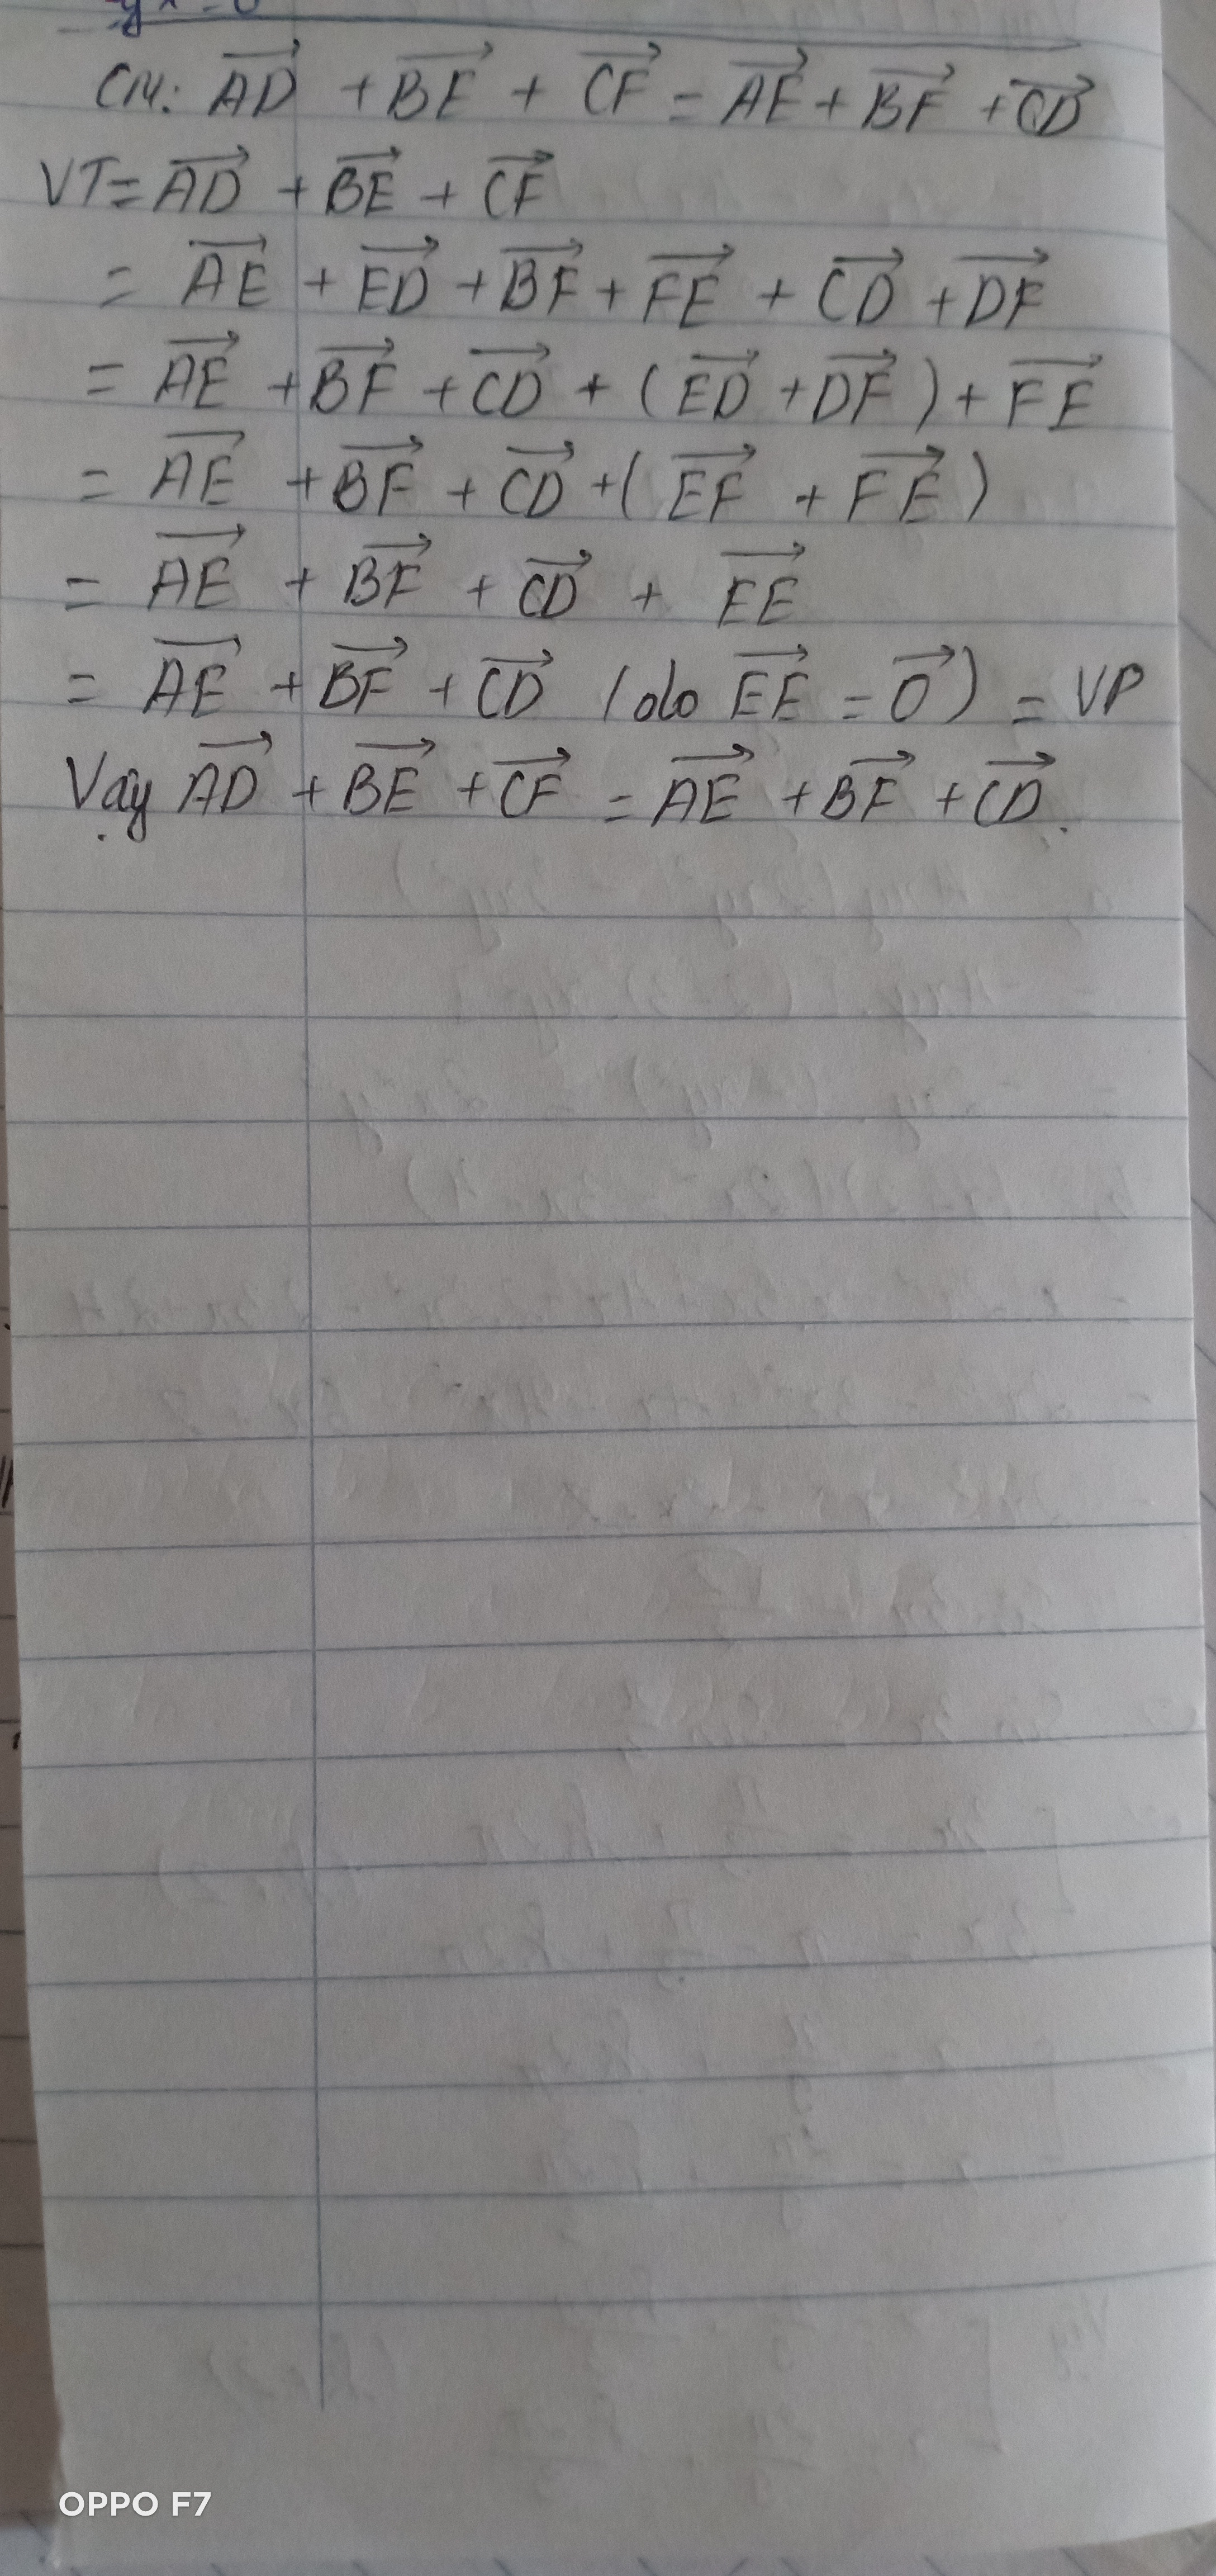 CM: \overrightarrow{AD} + \overrightarrow{BE} + \overrightarrow{CF} = \overrightarrow{AE} + \overrightarrow{BF} + \overrightarrow{CD}
VT = \overrightarrow{AD} + \overrightarrow{BE} + \overrightarrow{CF}
= \overrightarrow{AE} + \overrightarrow{ED} + \overrightarrow{BF} + \overrightarrow{FE} + \overrightarrow{CD} + \overrightarrow{DF}
= \overrightarrow{AE} + \overrightarrow{BF} + \overrightarrow{CD} + (\overrightarrow{ED} + \overrightarrow{DF}) + \overrightarrow{FE}
= \overrightarrow{AE} + \overrightarrow{BF} + \overrightarrow{CD} + (\overrightarrow{EF} + \overrightarrow{FE})
= \overrightarrow{AE} + \overrightarrow{BF} + \overrightarrow{CD} + \overrightarrow{EE}
= \overrightarrow{AE} + \overrightarrow{BF} + \overrightarrow{CD} (do \overrightarrow{EE} = \overrightarrow{0}) = VP
Vạy \overrightarrow{AD} + \overrightarrow{BE} + \overrightarrow{CF} = \overrightarrow{AE} + \overrightarrow{BF} + \overrightarrow{CD}.
OPPO F7